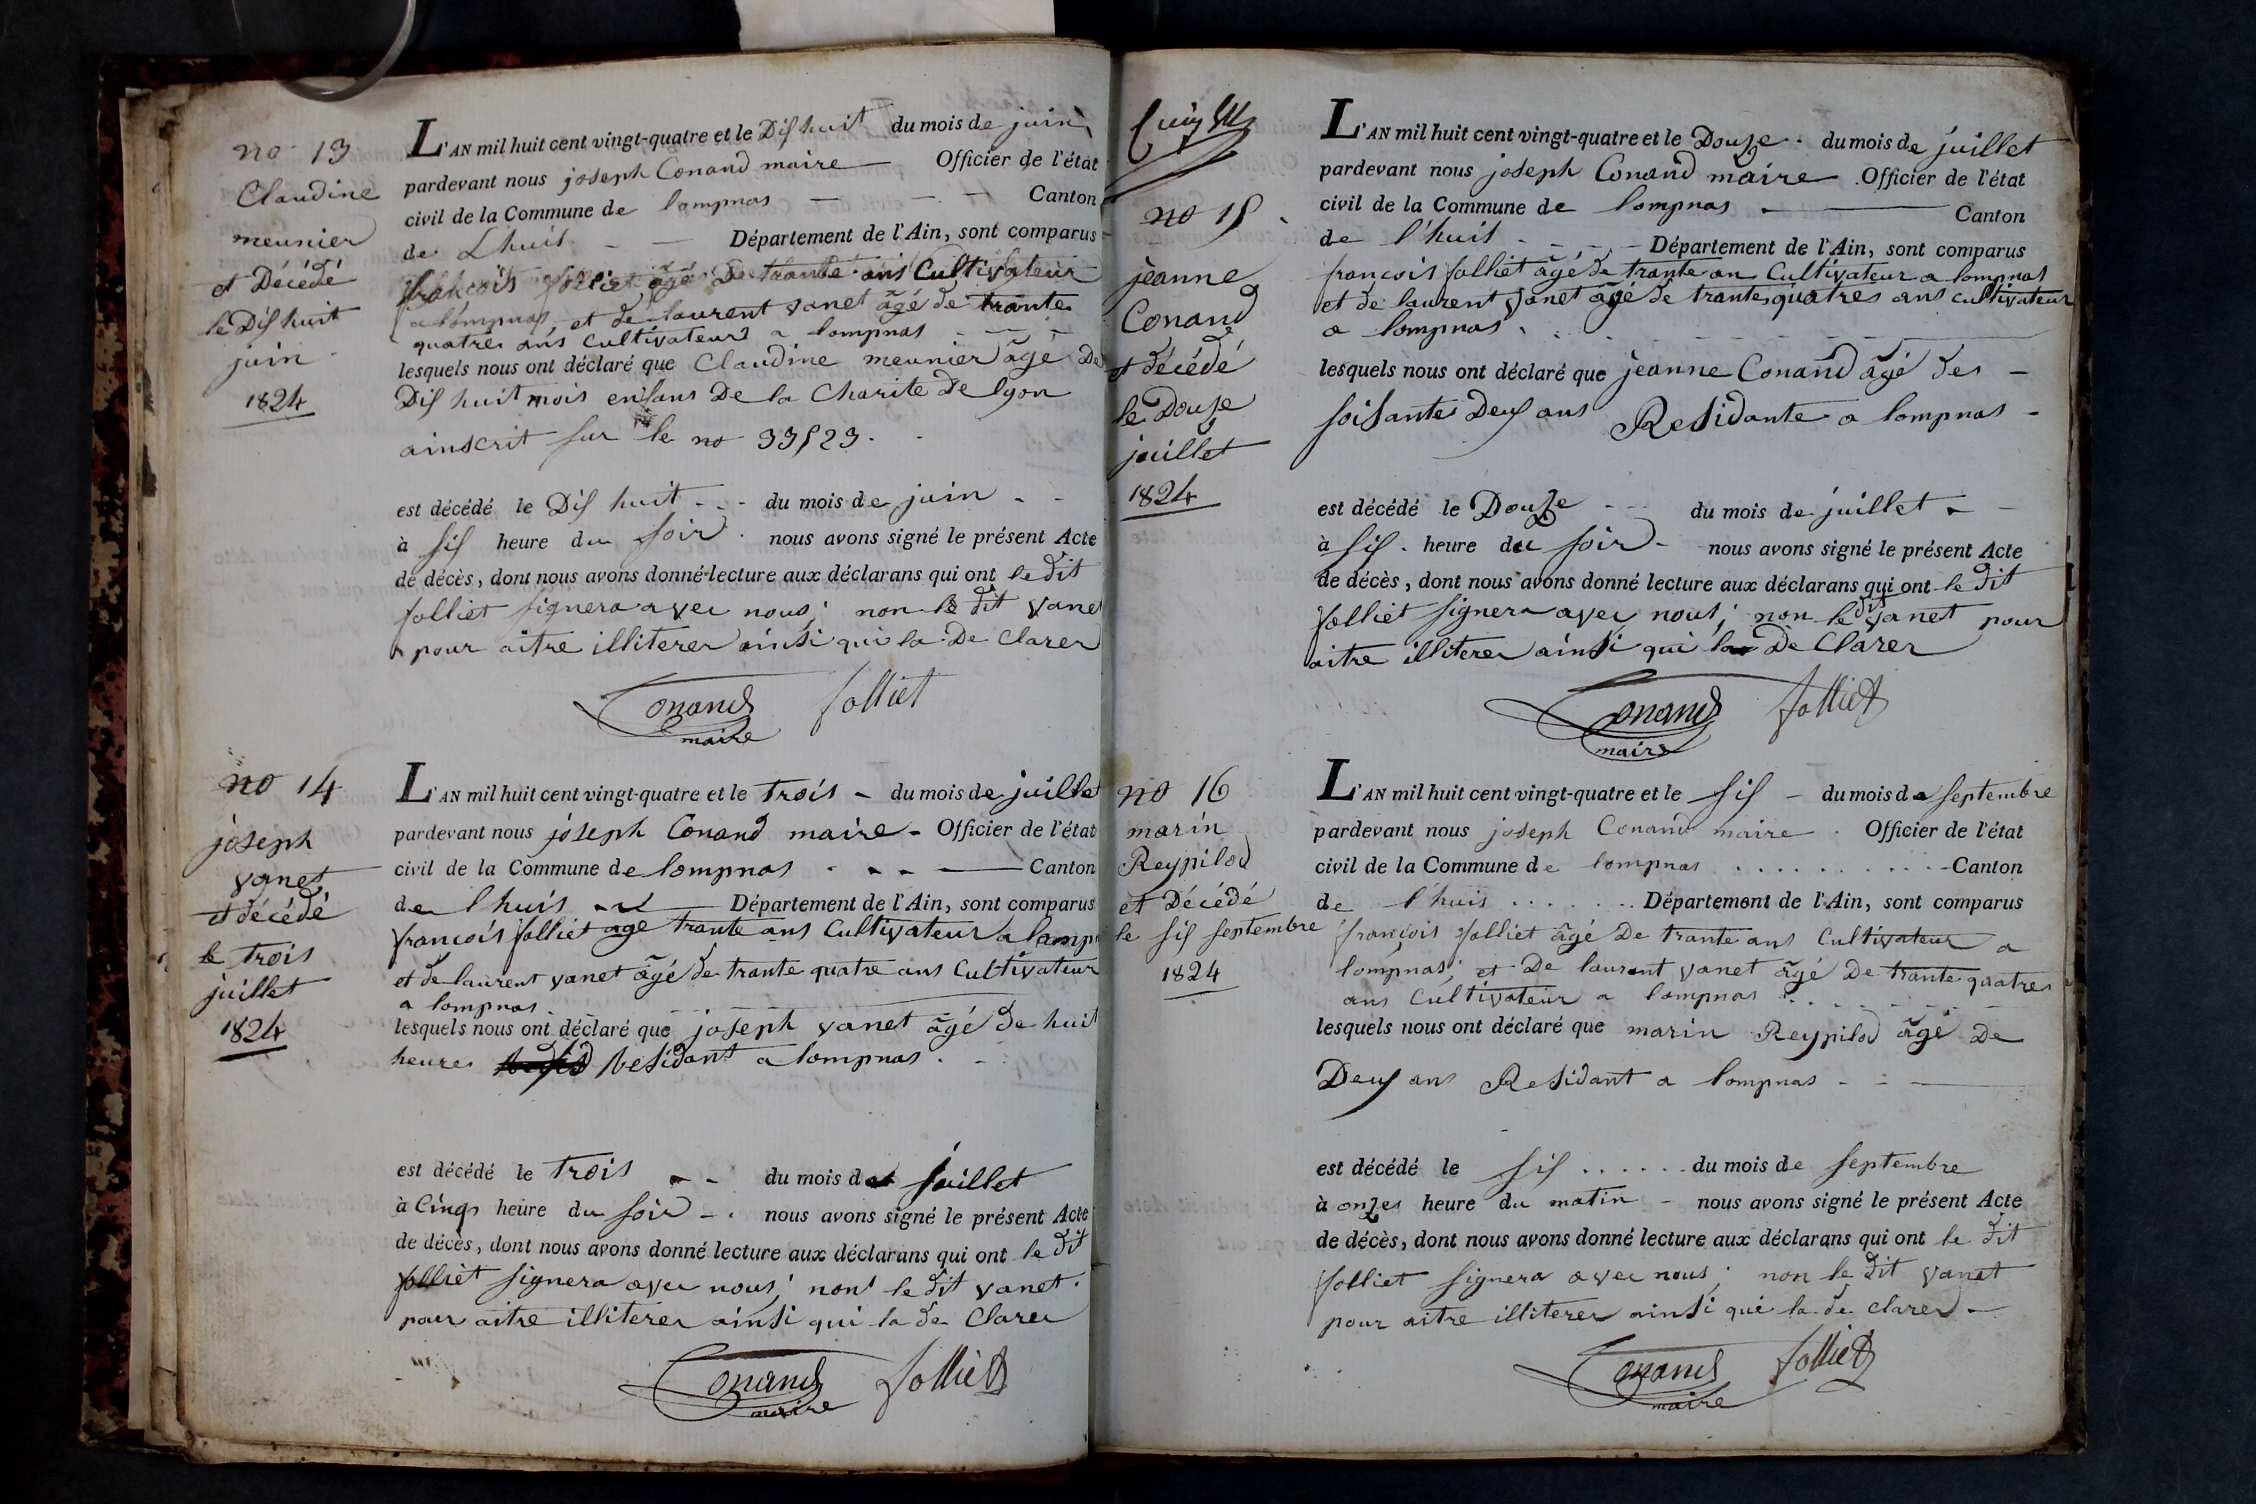 no 13
Claudine
meunier
et Décédé
le Dis huit
juin
1824
L'AN mil huit cent vingt-quatre et le Dis huit du mois de juin
pardevant nous joseph Conand maire Officier de l'état
civil de la Commune de lompnas Canton
de Lhuis Département de l'Ain, sont comparus
francois folliet âgé De trante ans Cultivateur
a lompnas, et de laurent vanet âgé de trante
quatres ans cultivateur a lompnas
lesquels nous ont déclaré que Claudine meunier âgé De
Dis huit mois enfans De la Charite De lyon
ainscrit sur le no 33523.
est décédé le Dis huit du mois de juin
à sis heure du soir nous avons signé le présent Acte
de décès, dont nous avons donné lecture aux déclarans qui ont le dit
folliet signera avec nous; non le dit vanet
pour aitre illiterer ainsi qui la De Clarer
Conand folliet
maire
no 14
joseph
vanet
et décédé
le trois
juillet
1824
L'AN mil huit cent vingt-quatre et le trois du mois de juillet
pardevant nous joseph Conand maire Officier de l'état
civil de la Commune de lompnas Canton
de lhuis Département de l'Ain, sont comparus
francois folliet age trante ans Cultivateur a lomp
et de laurent vanet âgé de trante quatre ans Cultivateur
a lompnas
lesquels nous ont déclaré que joseph vanet âgé de huit
heures Residant a lompnas.
est décédé le trois du mois de juillet
à Cinqs heure du soir nous avons signé le présent Acte
de décès, dont nous avons donné lecture aux déclarans qui ont le dit
folliet signera avec nous; nont le dit vanet
pour aitre illiterer ainsi qui la de Clarer
Conand folliet
maire
no 15
jeanne
Conand
et décédé
le Douze
juillet
1824
L'AN mil huit cent vingt-quatre et le Douze du mois de juillet
pardevant nous joseph Conand maire Officier de l'état
civil de la Commune de lompnas Canton
de l'huis Département de l'Ain, sont comparus
françois folliet âgé de trante an Cultivateur a lompnas
et de laurent vanet âgé de trante quatres ans cultivateur
a lompnas
lesquels nous ont déclaré que jeanne Conand âgé des
soisante Deus ans Residante a lompnas
est décédé le Douze du mois de juillet
à sis heure du soir nous avons signé le présent Acte
de décès, dont nous avons donné lecture aux déclarans qui ont le dit
folliet signera avec nous; non le dit vanet pour
aitre illiterer ainsi qui la De Clarer
Conand folliet
maire
no 16
marin
Reypilod
et Décédé
le sis septembre
1824
L'AN mil huit cent vingt-quatre et le sis du mois de septembre
pardevant nous joseph Conand maire Officier de l'état
civil de la Commune de lompnas Canton
de l'huis Département de l'Ain, sont comparus
françois folliet âgé De trante ans Cultivateur a
lompnas; et De laurent vanet âgé De trante quatres
ans Cultivateur a lompnas
lesquels nous ont déclaré que marin Reypilod âgé De
Deus ans Residant a lompnas
est décédé le sis du mois de septembre
à onzes heure du matin nous avons signé le présent Acte
de décès, dont nous avons donné lecture aux déclarans qui ont le dit
folliet signera avec nous; non le dit vanet
pour aitre illiterer ainsi qui la de clarer
Conand folliet
maire